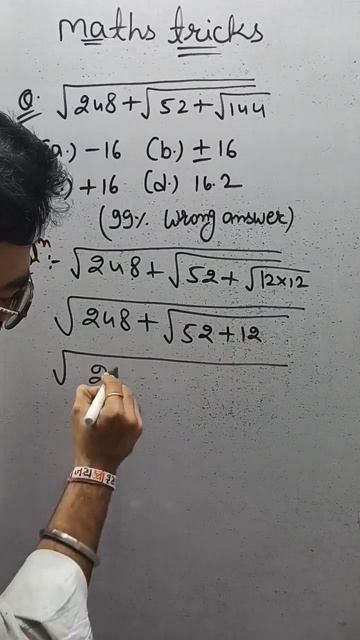 Maths tricks
Q. √248+√52+√144
a.) -16 (b.) ± 16
) +16 (d.) 16.2
(99% Wrong answer)
n :- √248+√52+√12×12
√248+√52+12
√2